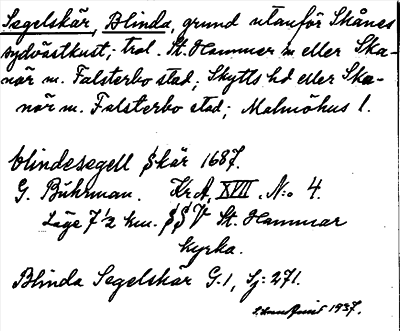 Segelskär, Blinda, grund utanför Skånes
sydvästkust; trol. St. Hammar m eller Ska-
nör m. Falsterbo stad; Skytts hd eller Ska-
nör m. Falsterbo stad; Malmöhus l.
blindesegell skär 1687.
G. Buhrman. Kr A, XVII, N:o 4.
Läge 7 1/2 km. SSV St. Hammar
kyrka.
Blinda Segelskär G. 1, Sj: 271.
1937.